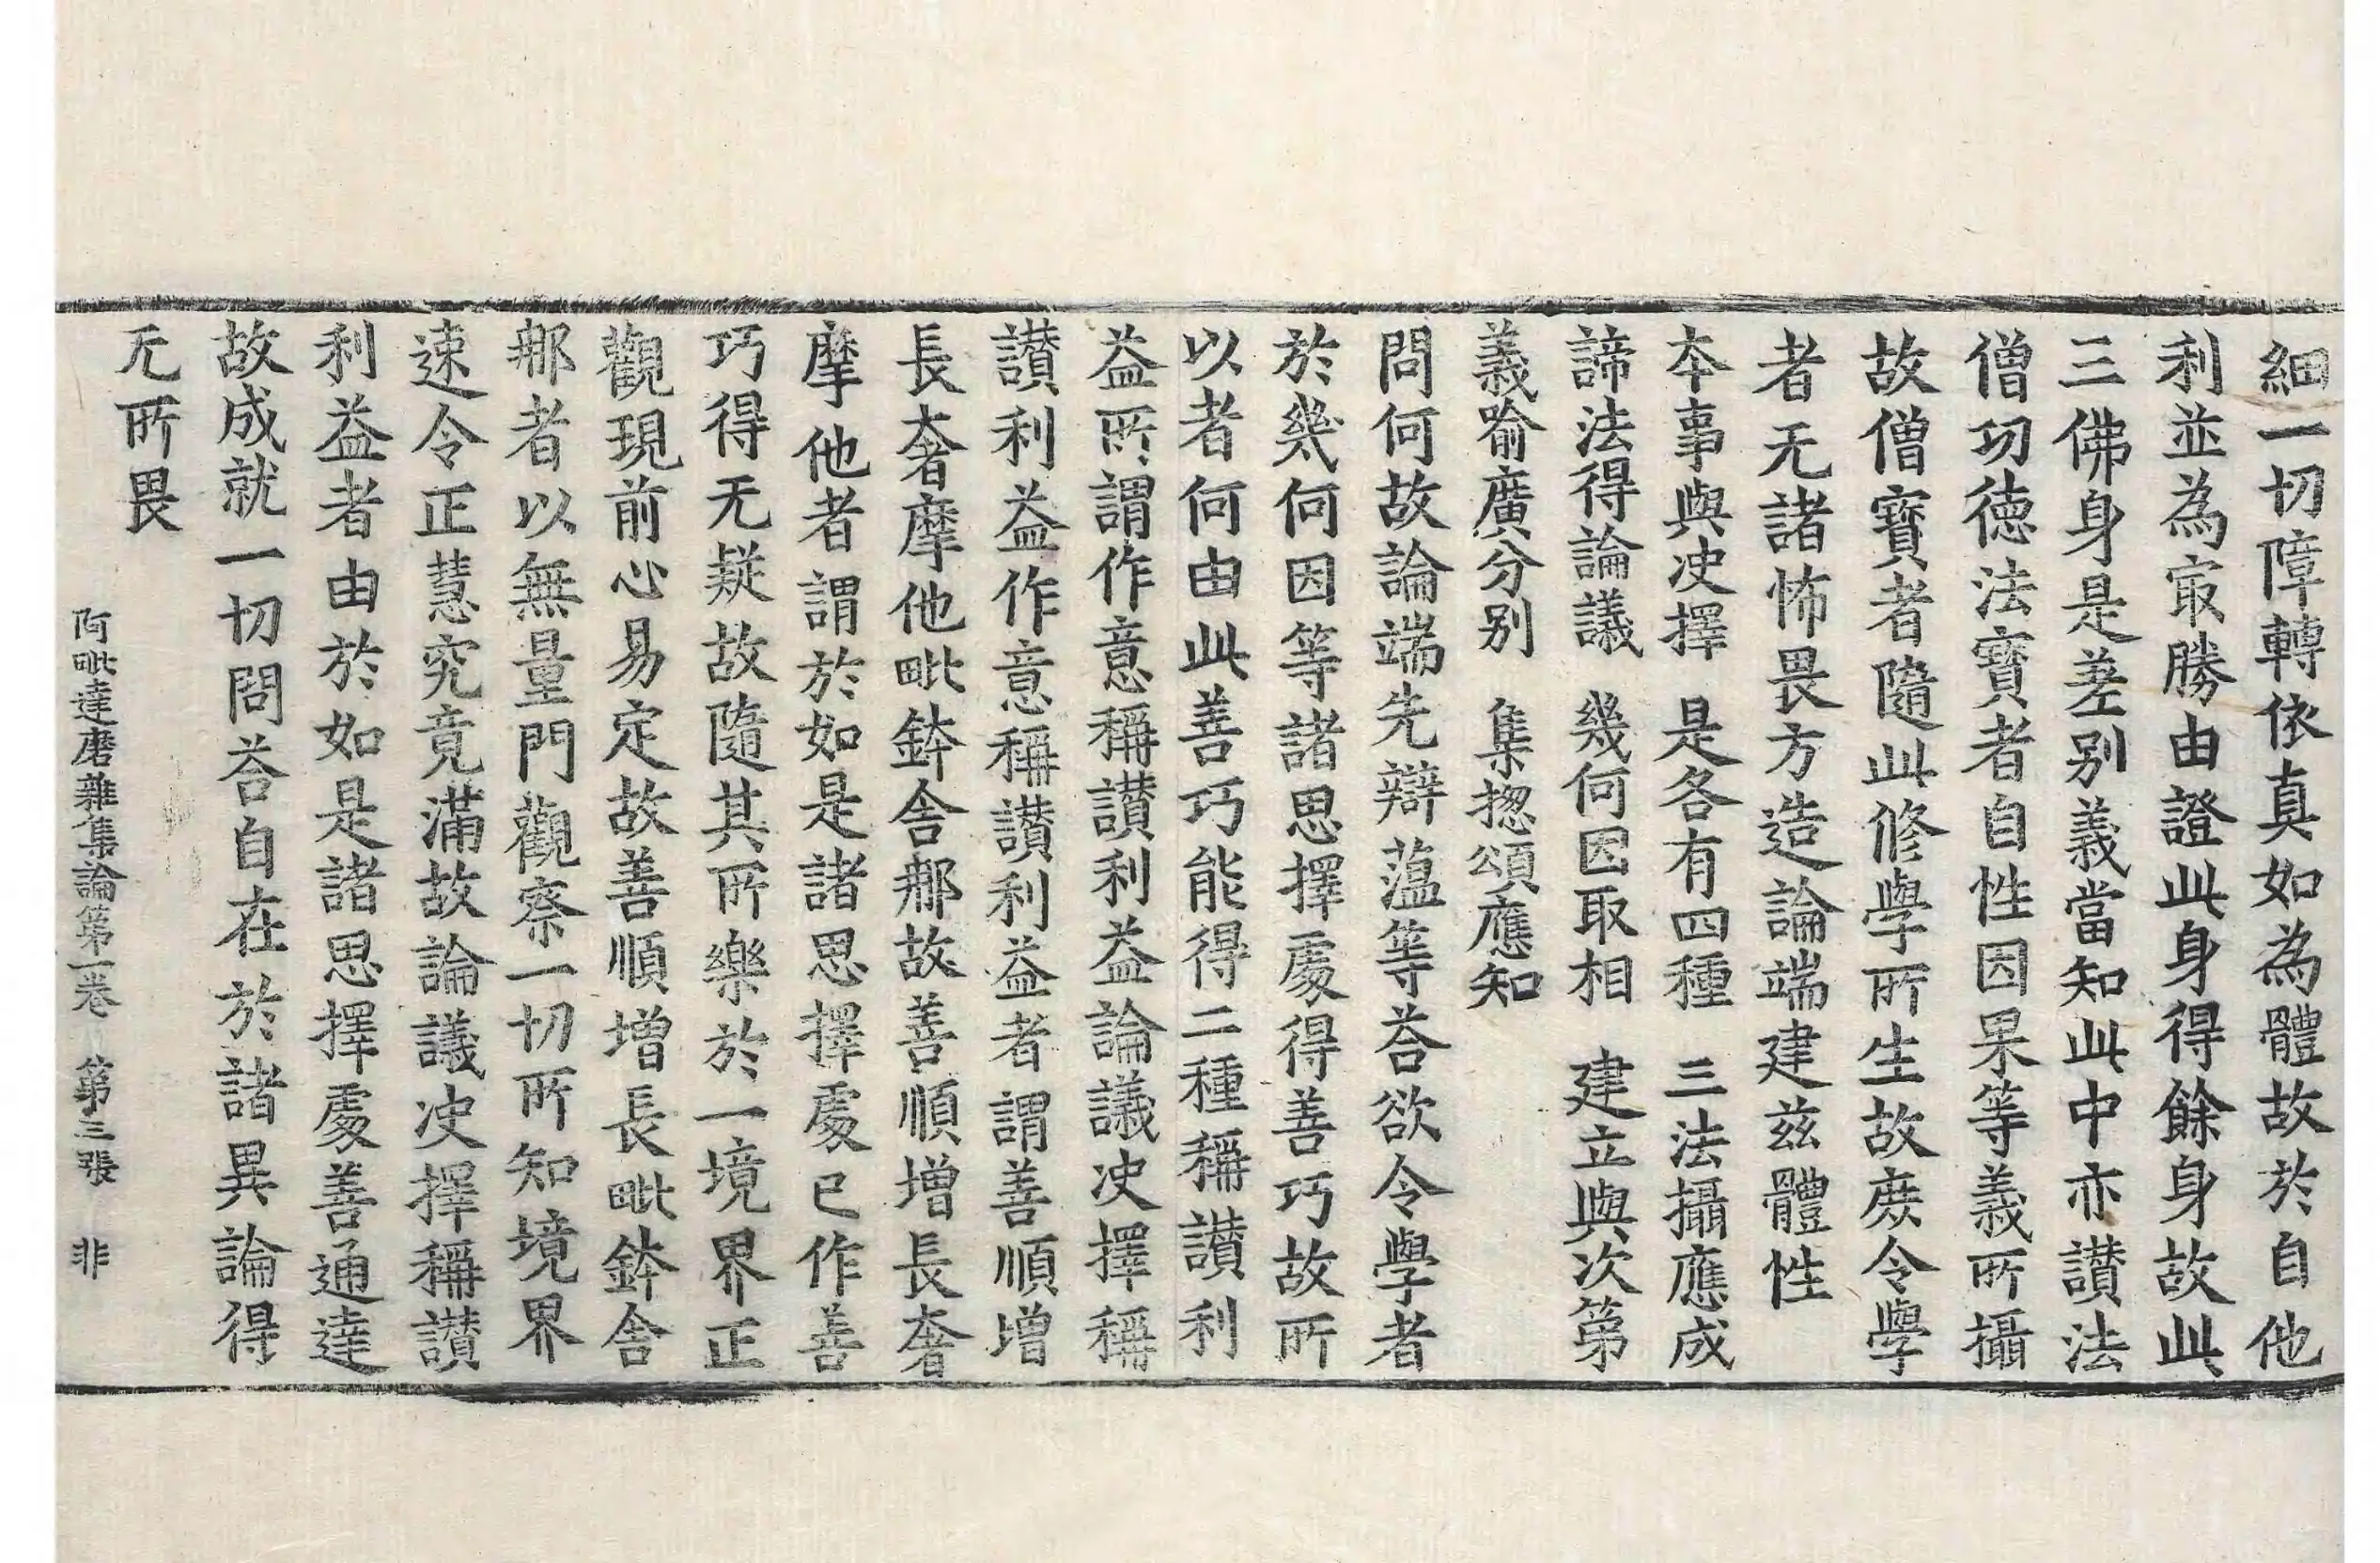 細一切障轉依真如為體故於自他
利並為㝡勝由證此身得餘身故此
三佛身是差别義當知此中亦讃法
僧功德法寶者自性因果等義所攝
故僧寶者隨此修學所生故庻令學
者无諸怖畏方造論端建兹體性
本事與决擇　是各有四種　三法攝應成
諦法得論議　幾何因取相　建立與次第
義喻廣分别　集揔頌應知
問何故論端先辯薀等荅欲令學者
於幾何因等諸思擇處得善巧故所
以者何由此善巧能得二種稱讃利
益所謂作意稱讃利益論議决擇稱
讃利益作意稱讃利益者謂善順增
長奢摩他毗鉢舍那故善順增長奢
摩他者謂於如是諸思擇處已作善
巧得无疑故隨其所樂於一境界正
觀現前心易定故善順增長毗鉢舍
那者以無量門觀察一切所知境界
速令正慧究竟滿故論議决擇稱讃
利益者由於如是諸思擇處善通達
故成就一切問荅自在於諸異論得
无所畏
阿毗達磨雜集論第一卷　第三張　非